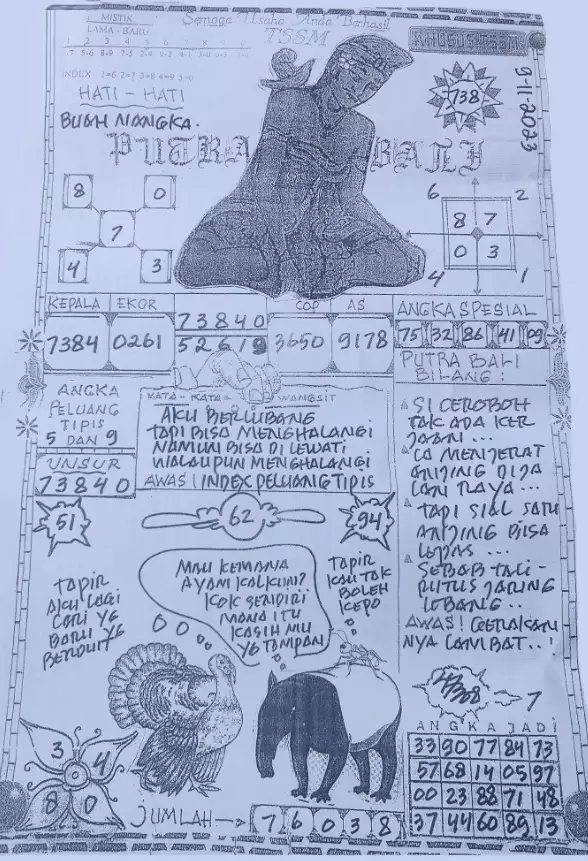 MISTIK
LAMA - BARU
Semoga Usaha Anda Berhasil
TSSM
KHUSUS TSSM
HATI - HATI
BUAH NANGKA.
738
9-11-2023
PUTRA BALI
8 0
7
4 3
6 2
8 7
0 3
4 1
KEPALA EKOR COP AS
7384 0261 73840 3650 9178
52619
ANGKA SPESIAL
75 32 86 41 09
PUTRA BALI
BILANG :
ANGKA
PELUANG
TIPIS
5 DAN 9
UNSUR
73840
KATA - KATA - WANGSIT
AKU BERLUBANG
TAPI BISA MENGHALANGI
NAMUN BISA DI LEWATI
WALAUPUN MENGHALANGI
AWAS ! INDEX PELUANG TIPIS
SI CEROBOH
TAK ADA KER
JAAN ...
TAPI SIAL SATU
ANJING BISA
LEPAS ...
SEBAB TALI -
PUTUS JARING
LOBANG ...
AWAS ! GERAKAN
NYA LAMBAT..!
51
62
94
TAPIR
AKU LAGI
CARI YG
BARU YG
BERDUIT
MAU KEMANA
AYAM KALKUN?
KOK SENDIRI
MANA ITU
KASIH MU
YG TAMPAN
TAPIR
KAU TAK
BOLEH
KEPO
7
ANGKA JADI
33 90 77 84 73
57 68 14 05 97
00 23 88 71 48
37 44 60 89 13
3 4
8 0
JUMLAH → 7 6 0 3 8